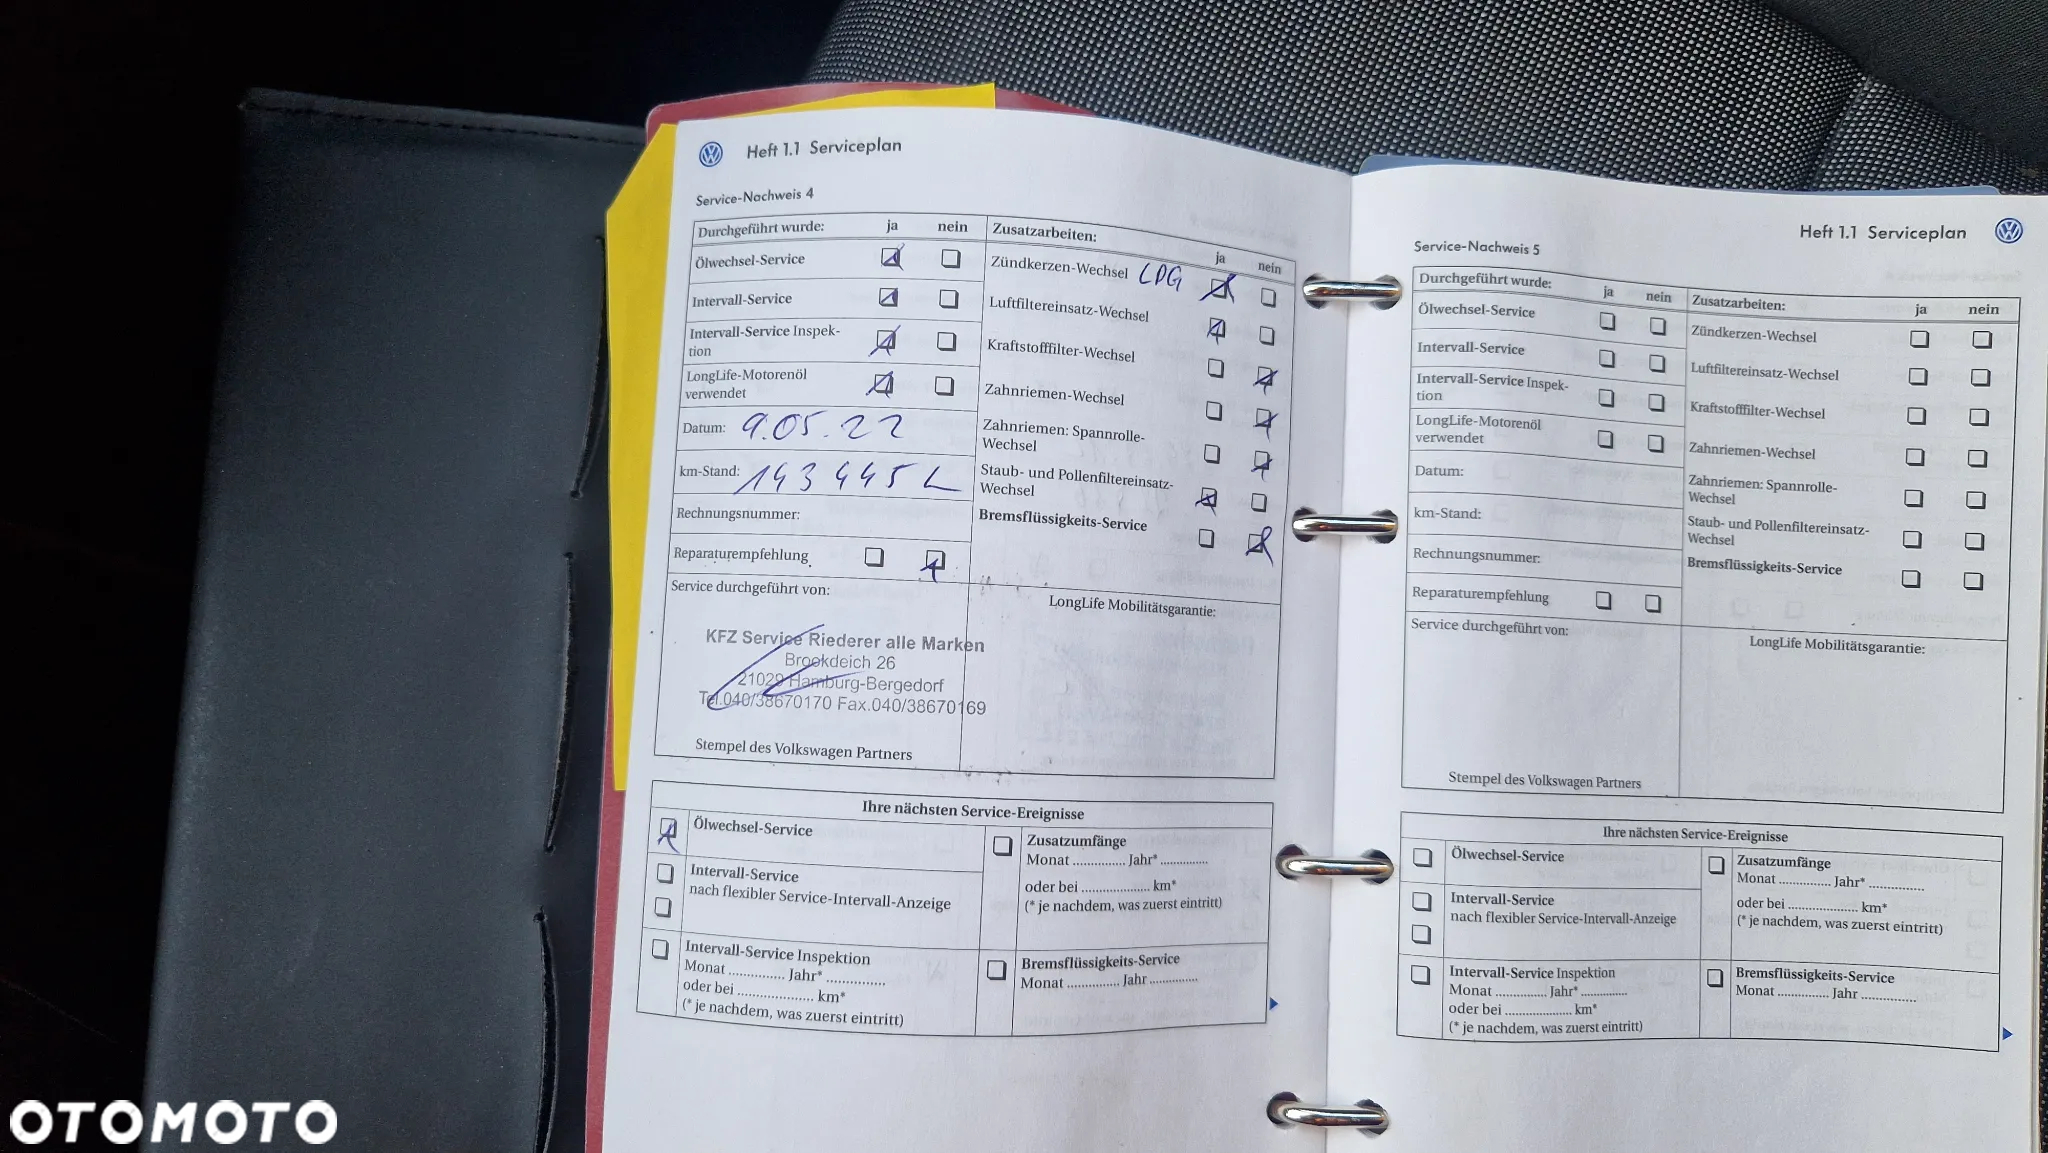 Heft 1.1 Serviceplan
Service-Nachweis 4
Durchgeführt wurde: ja nein
Ölwechsel-Service
Intervall-Service
Intervall-Service Inspek-
tion
LongLife-Motorenöl
verwendet
Datum: 9.05.22
km-Stand: 143 445
Rechnungsnummer:
Reparaturempfehlung
Zusatzarbeiten: ja nein
Zündkerzen-Wechsel LPG
Luftfiltereinsatz-Wechsel
Kraftstofffilter-Wechsel
Zahnriemen-Wechsel
Zahnriemen: Spannrolle-
Wechsel
Staub- und Pollenfiltereinsatz-
Wechsel
Bremsflüssigkeits-Service
Service durchgeführt von:
KFZ Service Riederer alle Marken
Brookdeich 26
21029 Hamburg-Bergedorf
Tel.040/38670170 Fax.040/38670169
Stempel des Volkswagen Partners
LongLife Mobilitätsgarantie:
Ihre nächsten Service-Ereignisse
Ölwechsel-Service
Intervall-Service
nach flexibler Service-Intervall-Anzeige
Intervall-Service Inspektion
Monat ............... Jahr* ...............
oder bei .................... km*
(* je nachdem, was zuerst eintritt)
Zusatzumfänge
Monat .............. Jahr* .............
oder bei .................... km*
(* je nachdem, was zuerst eintritt)
Bremsflüssigkeits-Service
Monat .............. Jahr .............
Heft 1.1 Serviceplan
Service-Nachweis 5
Durchgeführt wurde: ja nein
Ölwechsel-Service
Intervall-Service
Intervall-Service Inspek-
tion
LongLife-Motorenöl
verwendet
Datum:
km-Stand:
Rechnungsnummer:
Reparaturempfehlung
Zusatzarbeiten: ja nein
Zündkerzen-Wechsel
Luftfiltereinsatz-Wechsel
Kraftstofffilter-Wechsel
Zahnriemen-Wechsel
Zahnriemen: Spannrolle-
Wechsel
Staub- und Pollenfiltereinsatz-
Wechsel
Bremsflüssigkeits-Service
Service durchgeführt von:
Stempel des Volkswagen Partners
LongLife Mobilitätsgarantie:
Ihre nächsten Service-Ereignisse
Ölwechsel-Service
Intervall-Service
nach flexibler Service-Intervall-Anzeige
Intervall-Service Inspektion
Monat .............. Jahr* .............
oder bei .................... km*
(* je nachdem, was zuerst eintritt)
Zusatzumfänge
Monat .............. Jahr* ..............
oder bei .................... km*
(* je nachdem, was zuerst eintritt)
Bremsflüssigkeits-Service
Monat .............. Jahr ..............
OTOMOTO